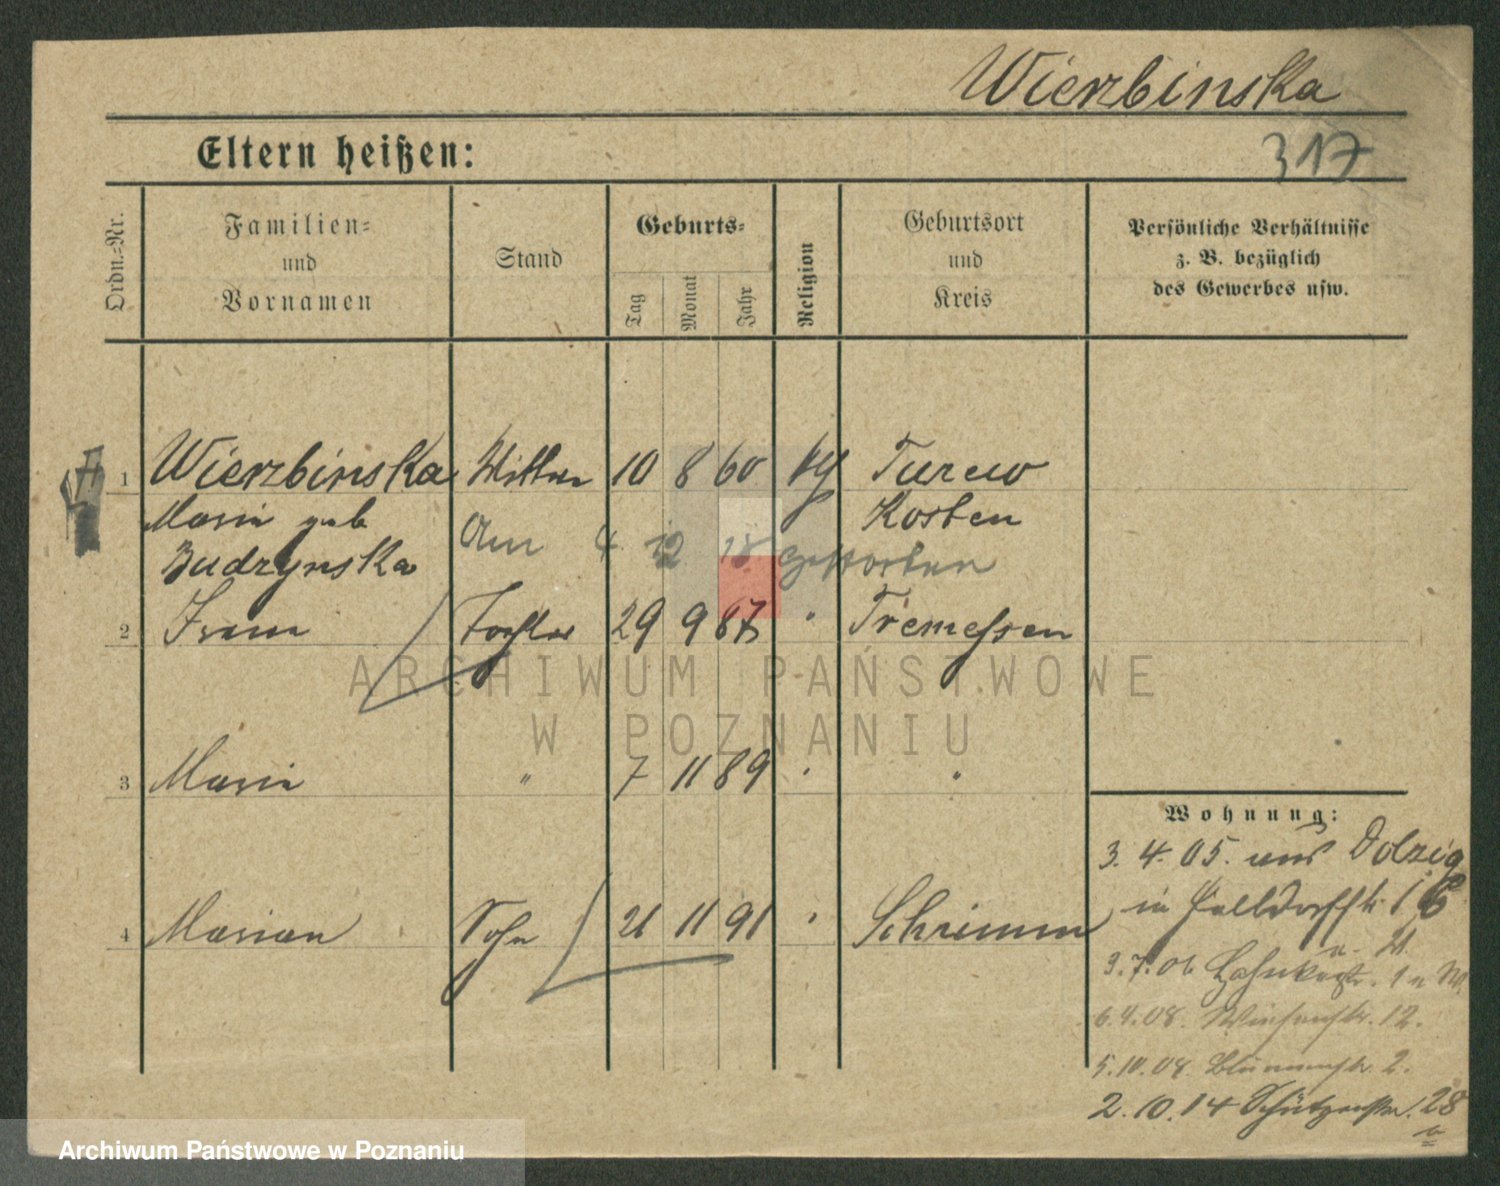 Wierzbinska
317
Eltern heißen:
Ordn.-Nr.
Familien-
und
Vornamen
Stand
Geburts-
Tag
Monat
Jahr
Religion
Geburtsort
und
Kreis
Persönliche Verhältnisse
z. B. bezüglich
des Gewerbes usw.
1 Wierzbinska Wittwe 10 8 60 Turew
Maria geb Kosten
Budzynska
Am 4 12 18 gestorben
2 Irena Tochter 29 9 87 " Tremessen
3 Maria " 7 11 89 " "
4 Marian Sohn 21 11 91 " Schrimm
Wohnung:
3. 4. 05. aus Dolzig
in
3.7.06
6.4.08. Wiesenstr. 12.
5.10.08. Blumenstr. 2.
2.10.14 Schützenstr. 28
ARCHIWUM PAŃSTWOWE
W POZNANIU
Archiwum Państwowe w Poznaniu